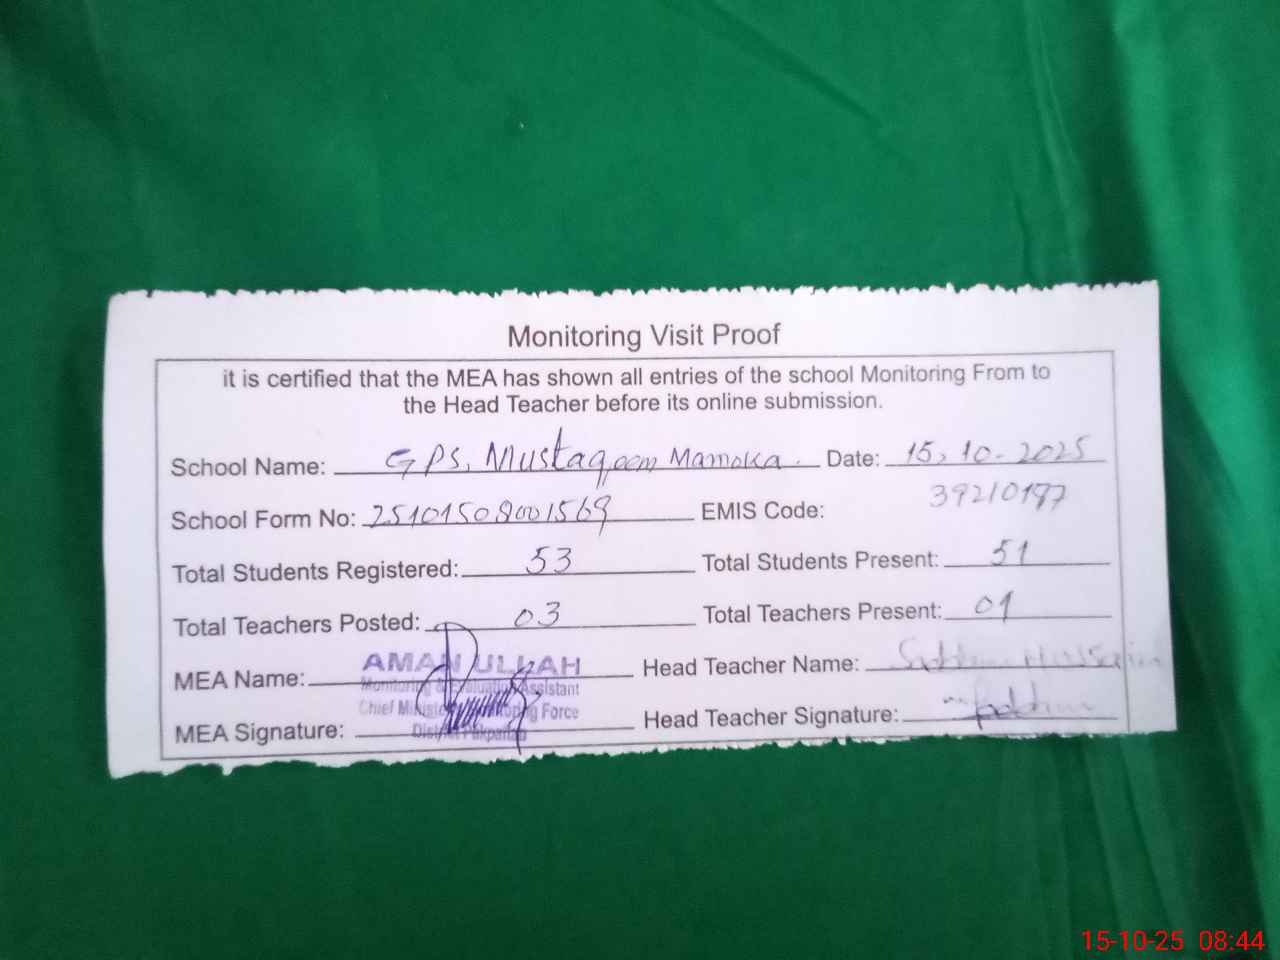 Monitoring Visit Proof
it is certified that the MEA has shown all entries of the school Monitoring From to
the Head Teacher before its online submission.
School Name: GPS, Mustaqeem Mamoka. Date: 15, 10-2025
School Form No: 25101508001569 EMIS Code: 39210197
Total Students Registered: 53 Total Students Present: 51
Total Teachers Posted: 03 Total Teachers Present: 01
MEA Name: AMAN ULLAH Head Teacher Name: Hussain
Monitoring & Evaluation Assistant
Chief Minister Monitoring Force
District Pakpattan
MEA Signature: Head Teacher Signature:
15-10-25 08:44